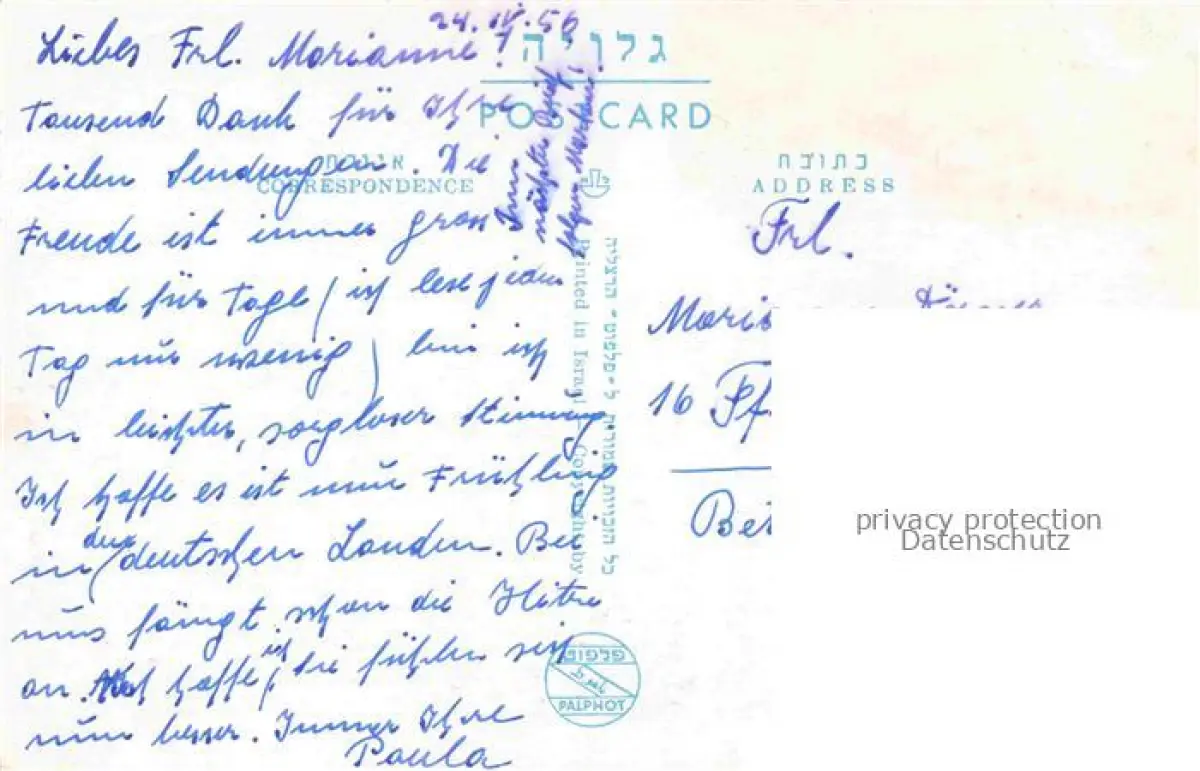 24. IV. 56
Liebes Frl. Marianne!
Tausend Dank für Ihre
lieben Sendungen. Die
Freude ist immer gross
und für Tage (ich lese jeden
Tag nur wenig) bin ich
in leichter, sorgloser Stimmung
Ich hoffe es ist nun Frühling
in den deutschen Landen. Bei
uns fängt schon die Hitze
an. hoffe ich, Sie fühlen sich
nun besser. Immer Ihre
Paula
Zum
nächsten Brief
folgen Marken!
גלויה
POSTCARD
אגרת
CORRESPONDENCE
כתובת
ADDRESS
Printed in Israel - Copyright by
כל הזכויות שמורות ל"פלפוט" הרצליה
פלפוט
PALPHOT
Frl.
Mari
16 Pf
Bei
privacy protection
Datenschutz